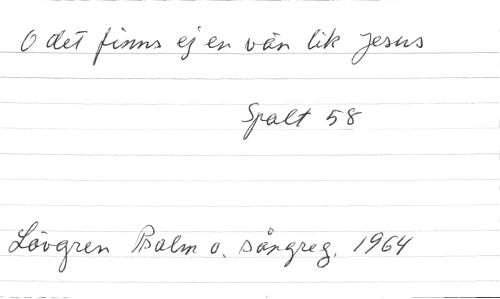 O det finns ej en vän lik Jesus
Spalt 58
Lövgren Psalm o. sångreg. 1964